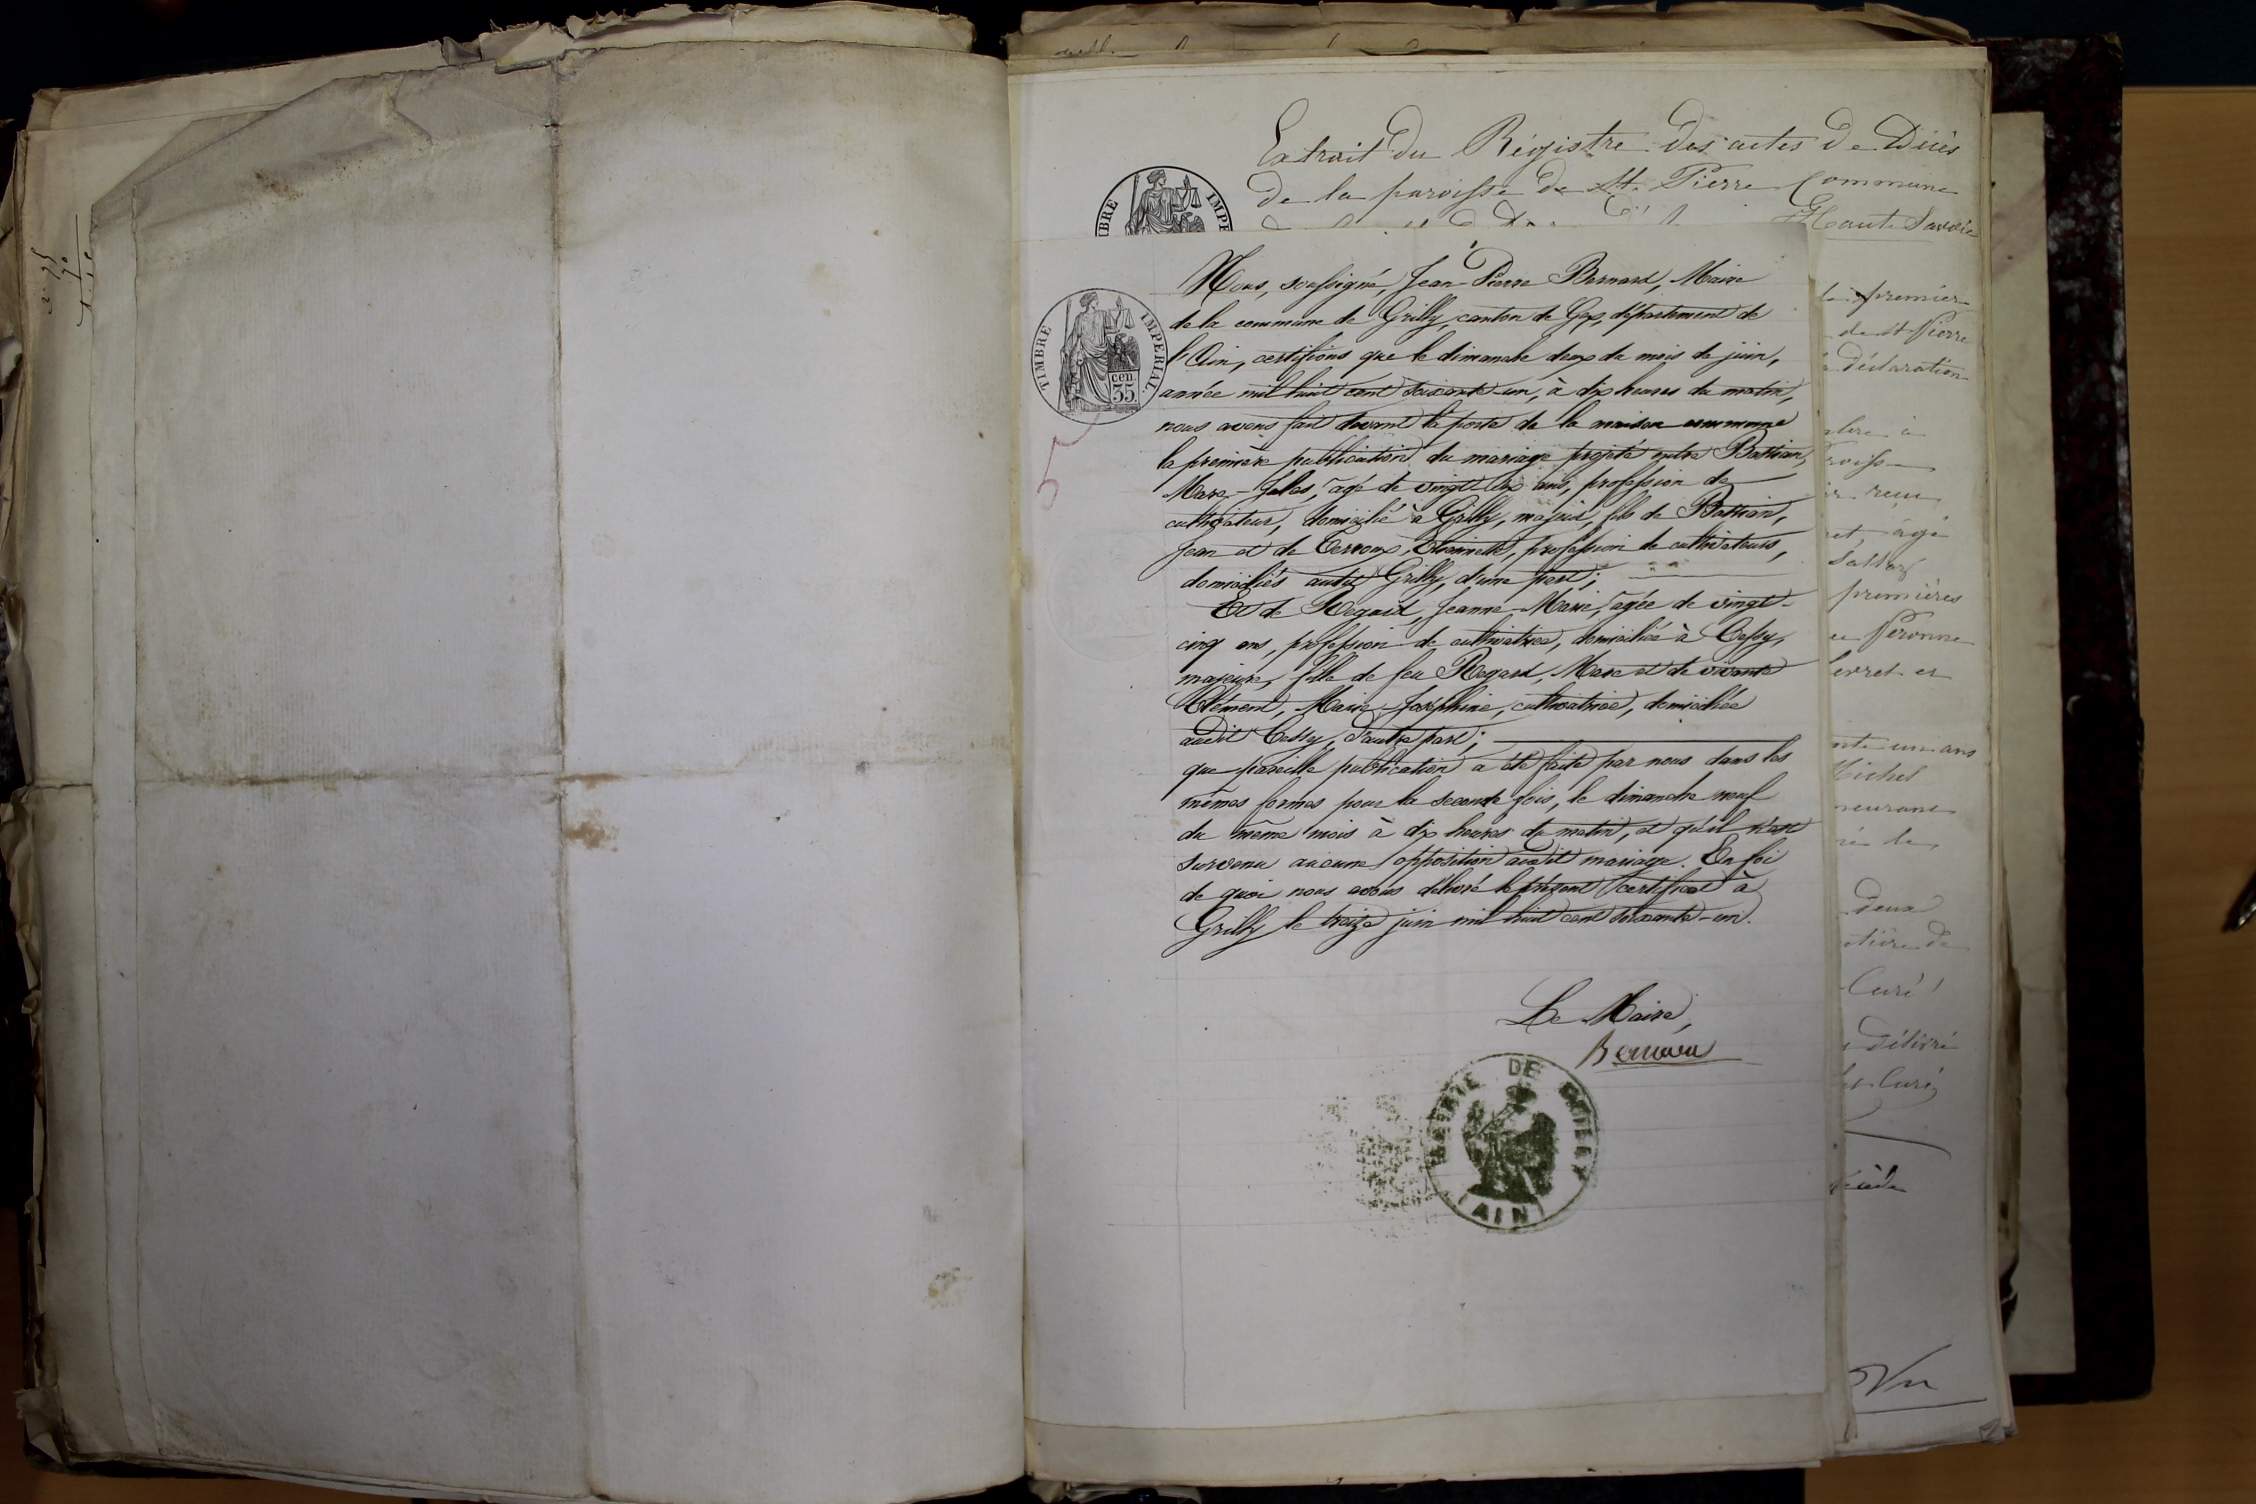 2.75
70
Extrait du Régistre des actes de Décès
de la paroisse de St. Pierre Commune
Haute Savoie
TIMBRE IMPERIAL
cen
35
5
Nous, soussigné, Jean-Pierre Bernard, Maire
de la commune de Grilly, canton de Gex, département de
l'Ain, certifions que le dimanche deux du mois de juin,
année mil huit cent soixante-un, à dix heures du matin,
nous avons fait devant la porte de la maison commune
la première publication du mariage projeté entre Battian,
Marc-Jules, âgé de vingt six ans, profession de
cultivateur, domicilié à Grilly, majeur, fils de Battian,
Jean et de Terroux, Etiennette, profession de cultivateurs,
domiciliés audit Grilly, d'une part;
Et de Regard, Jeanne-Marie, âgée de vingt-
cinq ans, profession de cultivatrice, domiciliée à Cessy,
majeure, fille de feu Regard, Marc et de vivante
Clément, Marie-Joséphine, cultivatrice, domiciliée
audit Cessy, d'autre part;
que pareille publication a été faite par nous dans les
mêmes formes pour la seconde fois, le dimanche neuf
du même mois à dix heures du matin, et qu'il n'est
survenu aucune opposition audit mariage. En foi
de quoi nous avons délivré le présent certificat à
Grilly le treize juin mil huit cent soixante-un.
Le Maire,
Bernard
MAIRIE DE GRILLY
(AIN)
le premier
de St Pierre
déclaration
reçu
et, âgé
premières
Péronne
erret et
un ans
Michel
deux
Curé
délivré
Curé
Vu